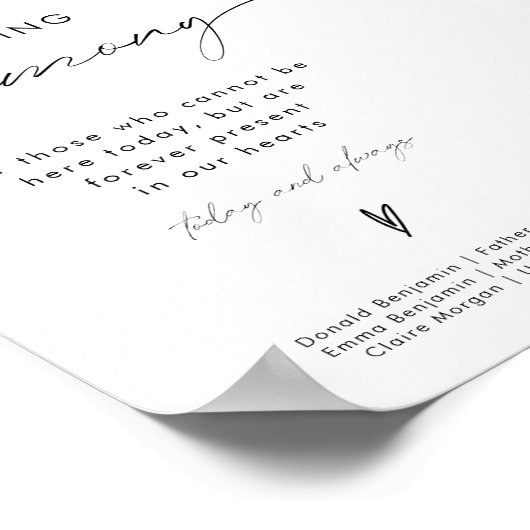 ING
those who cannot be
here today, but are
forever present
in our hearts
today and always
Donald Benjamin | Father
Emma Benjamin | Moth
Claire Morgan | U